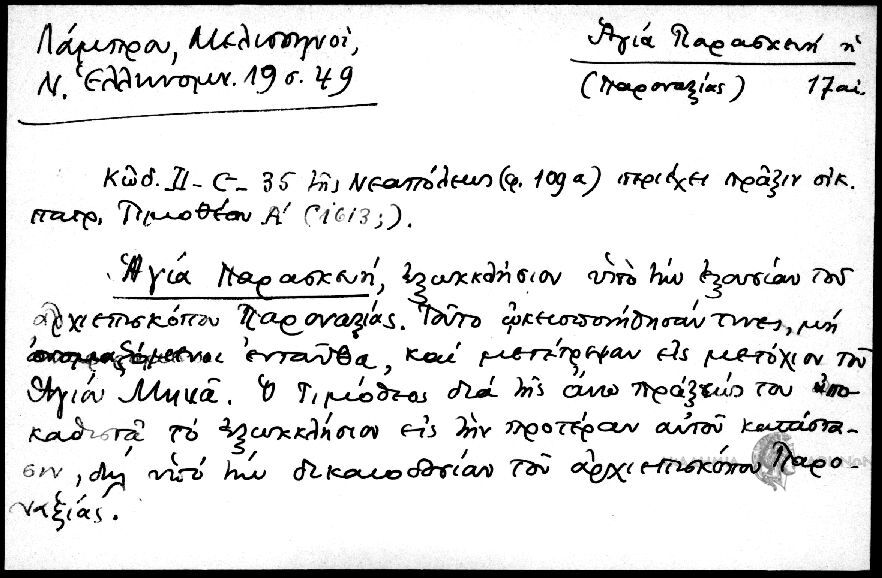 Λάμπρου, Μελισσηνοί,
Ν. Ἑλληνομν. 19 σ. 49
Ἁγία Παρασκευή ἡ
(Παροναξίας) 17 αἰ.
Κῶδ. II-C-35 τῆς Νεαπόλεως (φ. 109α) περιέχει πρᾶξιν οἰκ.
πατρ. Τιμοθέου Α' (1613;).
Ἁγία Παρασκευή, ἐξωκκλήσιον ὑπὸ τὴν ἐξουσίαν τοῦ
ἀρχιεπισκόπου Παροναξίας. Τοῦτο ᾠκειοποιήθησάν τινες, μή
ὀνομαζόμενοι ἐνταῦθα, καί μετέτρεψαν εἰς μετόχιον τοῦ
Ἁγίου Μηνᾶ. Ὁ Τιμόθεος διά τῆς ἄνω πράξεώς του ἀπο-
καθιστᾶ τὸ ἐξωκκλήσιον εἰς τὴν προτέραν αὐτοῦ κατάστα-
σιν, δηλ ὑπό τήν δικαιοδοσίαν τοῦ ἀρχιεπισκόπου Παρο-
ναξίας.